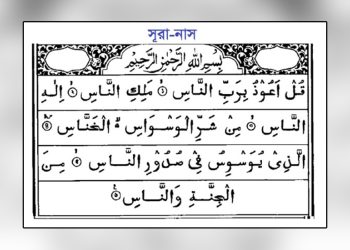 সূরা-নাস
بِسْمِ اللهِ الرَّحْمٰنِ الرَّحِيْمِ
قُلْ اَعُوْذُ بِرَبِّ النَّاسِ ۝ مَلِكِ النَّاسِ ۝ اِلٰهِ
النَّاسِ ۝ مِنْ شَرِّ الْوَسْوَاسِ الْخَنَّاسِ ۝
الَّذِىْ يُوَسْوِسُ فِىْ صُدُوْرِ النَّاسِ ۝ مِنَ
الْجِنَّةِ وَالنَّاسِ ۝